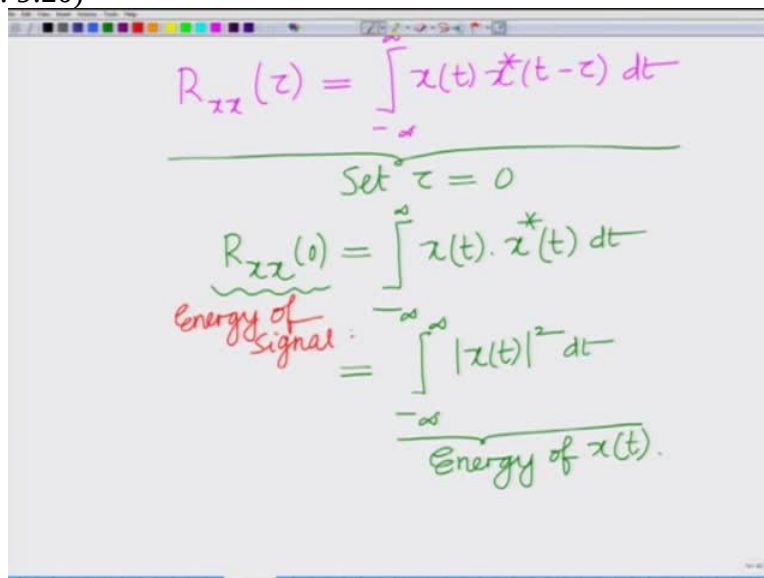 R_{xx}(τ) = ∫_{-∞}^{∞} x(t) x*(t-τ) dt
Set τ = 0
R_{xx}(0) = ∫_{-∞}^{∞} x(t). x*(t) dt
Energy of
Signal.
= ∫_{-∞}^{∞} |x(t)|² dt
Energy of x(t).